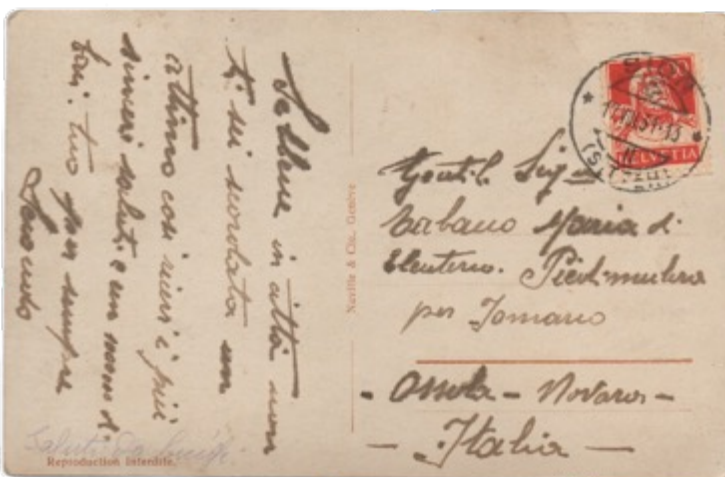 Sebbene in città non
ti sei scordata un
attimo così invii i più
sinceri saluti e un mondo di
baci. tuo per sempre
Secondo
Saluti da Luigi
Reproduction interdite.
Naville & Cie., Genève
SION
HELVETIA
Gentil. Sig.na
Maria di
Eleuterio. Piedimulera
per
- Ossola - Novara -
- Italia -